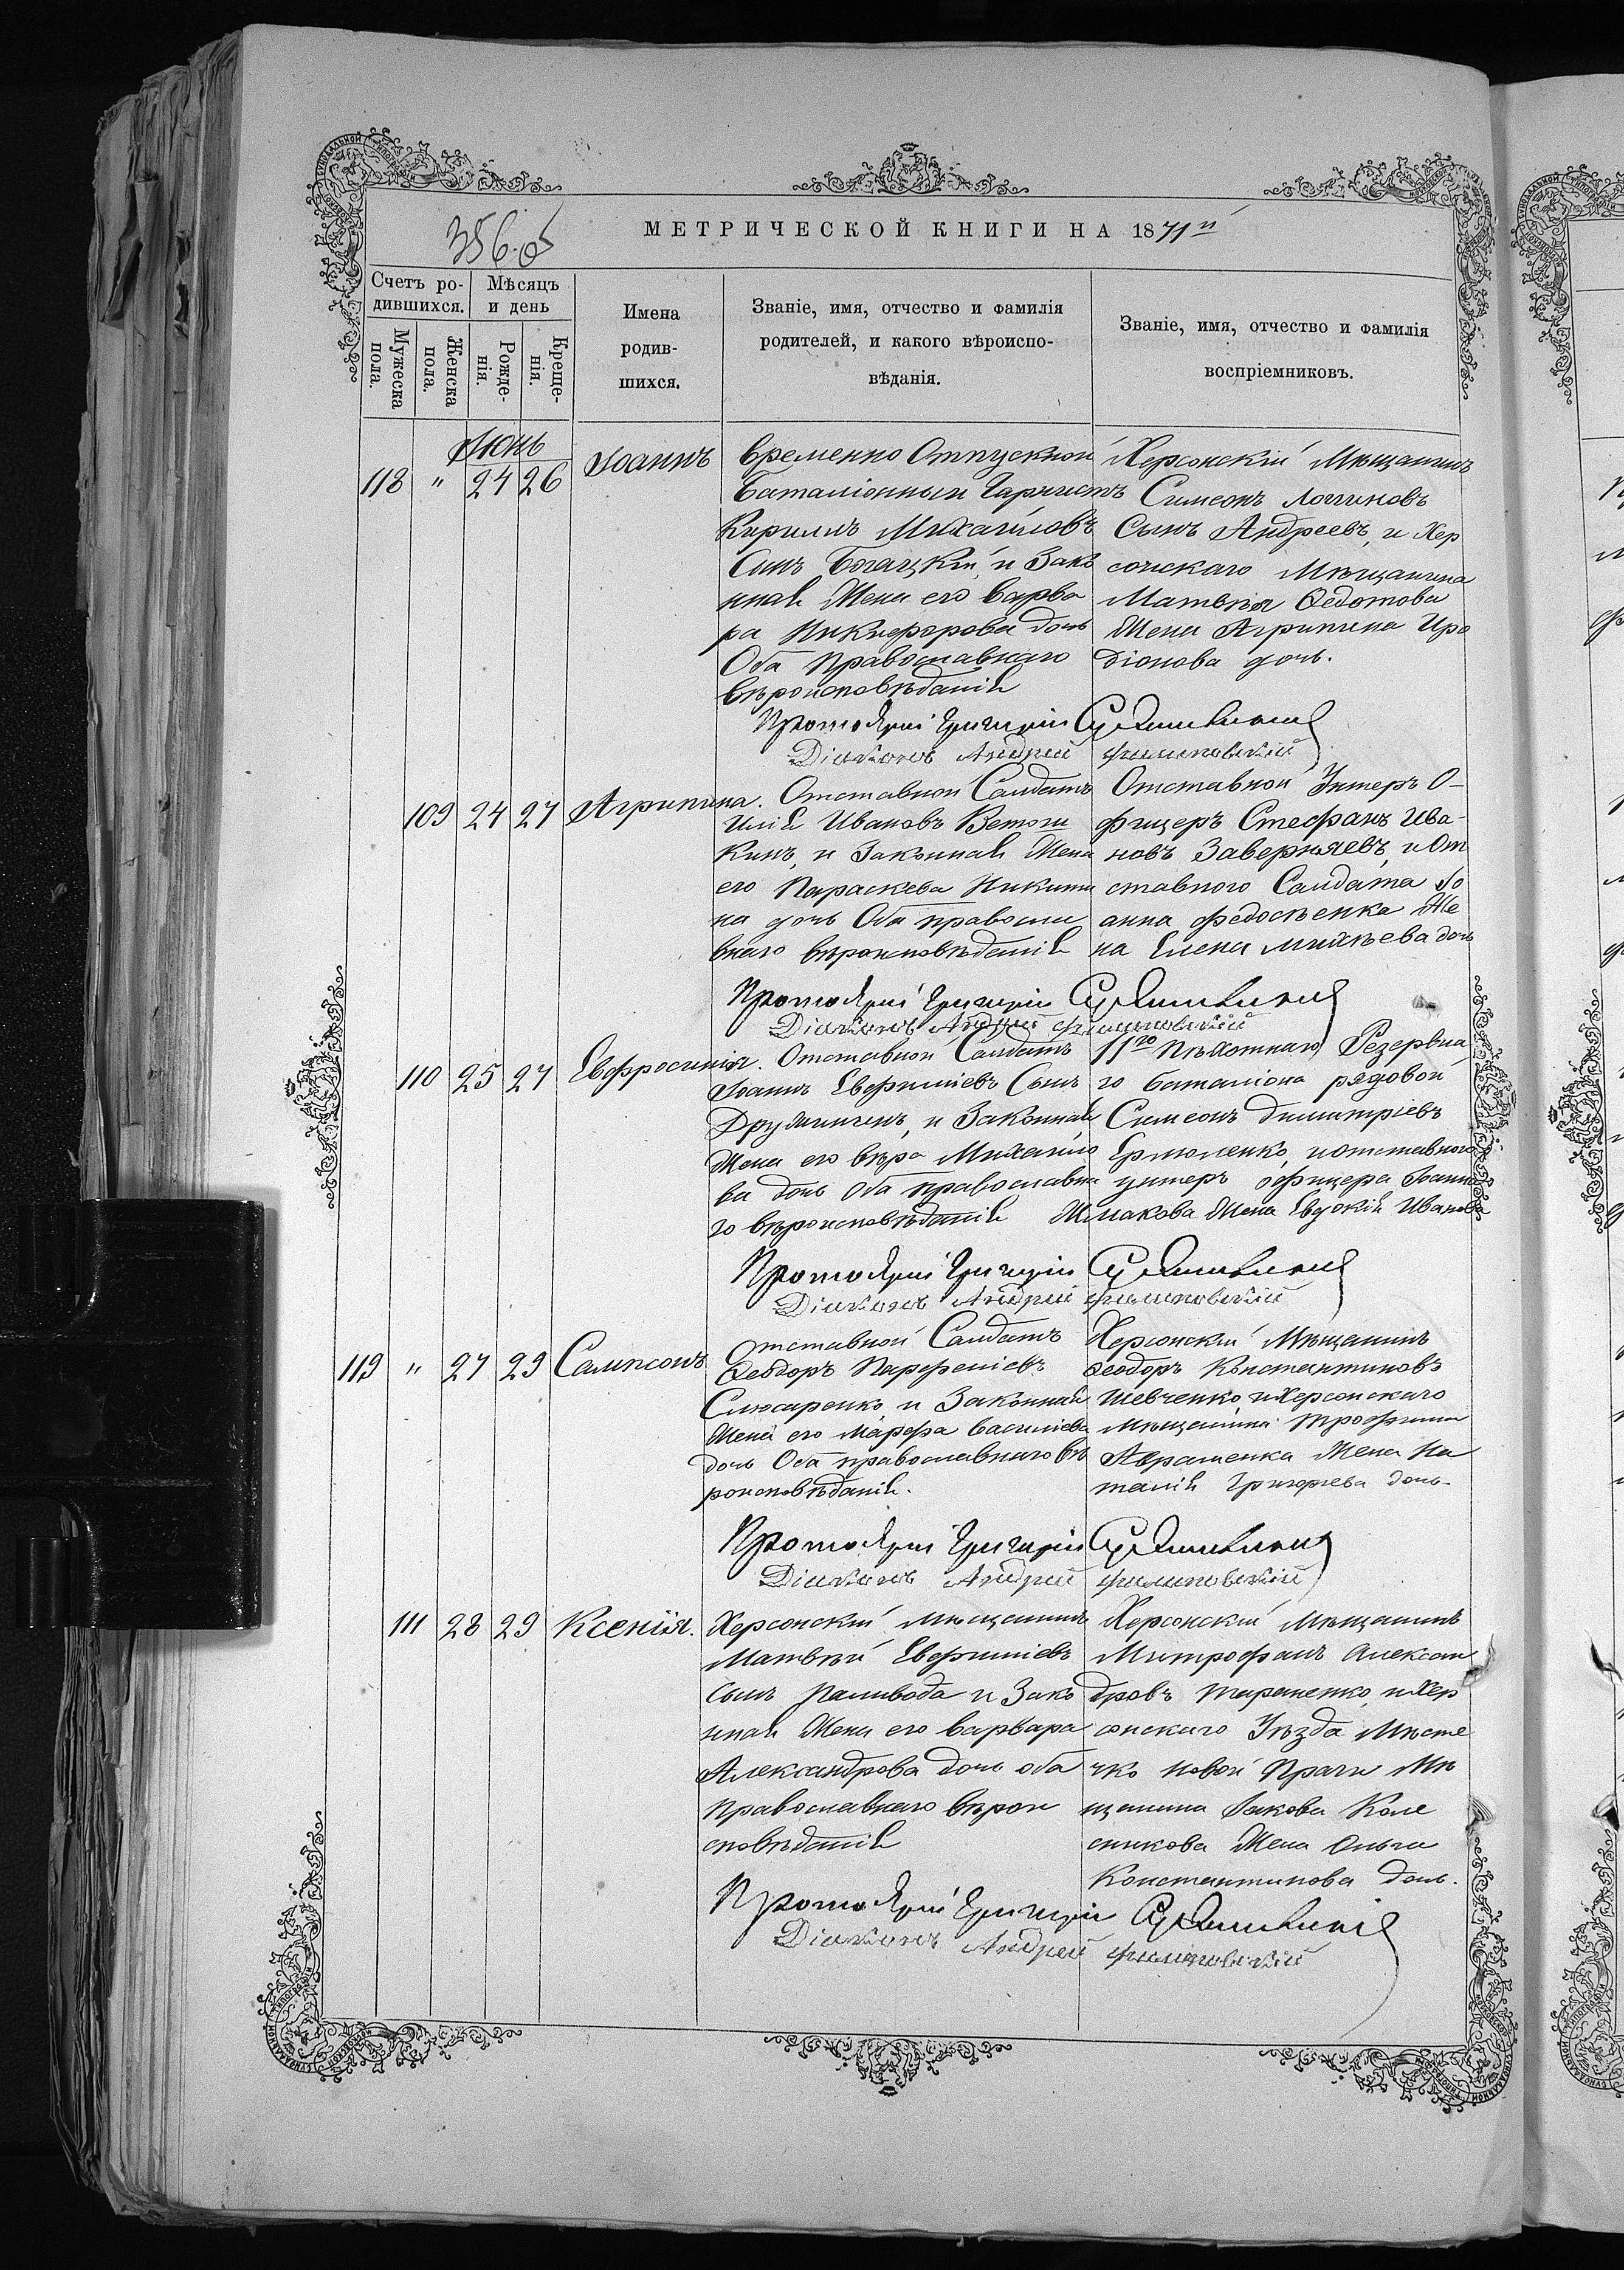 МЕТРИЧЕСКОЙ КНИГИ НА 1871й
356 об
Счетъ ро-
дившихся.
Мѣсяцъ
и день
Мужеска
пола.
Женска
пола.
Рожде-
нія.
Креще-
нія.
Имена
родив-
шихся.
Званіе, имя, отчество и фамилія
родителей, и какого вѣроиспо-
вѣданія.
Званіе, имя, отчество и фамилія
воспріемниковъ.
Іюнь
118 " 24 26
Іоаннъ
Временно Отпускной
Баталіонный Гарнистъ
Кирилъ Михайловъ
Сынъ Богацкій, и Зако
нная Жена его Варва
ра Никифорова дочь
Оба Православнаго
вѣроисповѣданія
Херсонскій Мѣщанинъ
Симеонъ Логиновъ
Сынъ Андреевъ, и Хер
сонскаго Мѣщанина
Матвѣя Ѳедотова
Жена Агрипина Иро
діонова дочь.
Протоіерей Григорій
Діаконъ Андрей Филиповскій
109 24 27
Агрипина.
Отставной Солдатъ
Илія Ивановъ Ветоши
Кинъ, и Законная Жена
его Параскева Никити
на дочь Оба правосла
внаго вѣроисповѣданія
Отставной Унтеръ О-
фицеръ Стефанъ Ива-
новъ Заверняевъ, и От
ставного Салдата Іо
анна Федосѣенка Же
на Елена Михѣева дочь
Протоіерей Григорій
Діаконъ Андрей Филиповскій
110 25 27
Евфросинія.
Отставной Салдатъ
Іоаннъ Евфиміевъ Сынъ
Дружининъ, и Законная
Жена его Вѣра Михайло
ва дочь Оба православна
го вѣроисповѣданія
11го Пѣхотнаго Резервна
го баталіона рядовой
Симеонъ Димитріевъ
Ермоленко, и отставного
унтеръ офицера Іоанна
Жмакова Жена Евдокія Иванова
Протоіерей Григорій
Діаконъ Андрей Филиповскій
119 " 27 29
Сампсонъ
Отставной Салдатъ
Ѳеодоръ Парфеніевъ
Слюсаренко и Законная
Жена его Марфа Василіева
дочь Оба православнаго вѣ
роисповѣданія.
Херсонскій Мѣщанинъ
Ѳеодоръ Константиновъ
Шевченко, и Херсонскаго
Мѣщанина Трофима
Авраменка Жена На
талія Григорьева дочь
Протоіерей Григорій
Діаконъ Андрей Филиповскій
111 28 29
Ксенія.
Херсонскій Мѣщанинъ
Матвѣй Евфиміевъ
Сынъ Паливода и Зако
нная Жена его Варвара
Александрова дочь оба
Православнаго вѣрои
сповѣданія
Херсонскій Мѣщанинъ
Митрофанъ Алексан
дровъ Тараненко, и Хер
сонскаго Уѣзда Мѣсте
чко Новой Праги Мѣ
щанина Іакова Коле
сникова Жена Ольга
Константинова дочь.
Протоіерей Григорій
Діаконъ Андрей Филиповскій